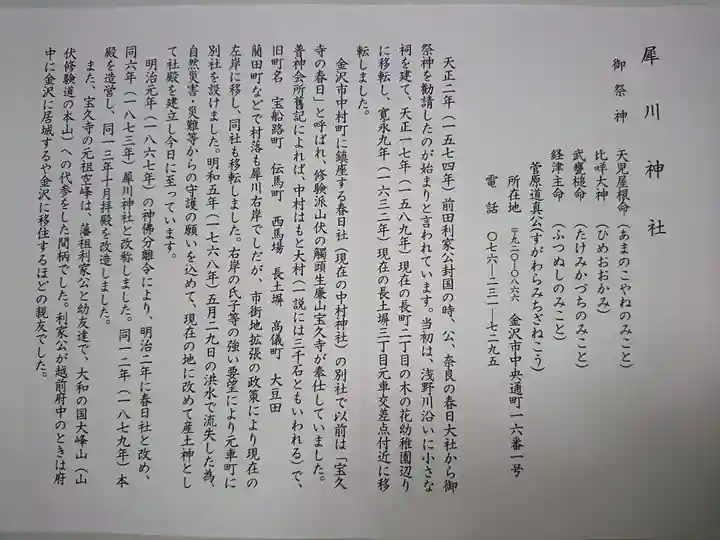 犀川神社
御祭神
天児屋根命(あまのこやねのみこと)
比咩大神(ひめおおかみ)
武甕槌命(たけみかづちのみこと)
経津主命(ふつぬしのみこと)
菅原道真公(すがわらみちざねこう)
所在地 〒九二〇―〇八六六 金沢市中央通町一六番一号
電話 〇七六―二三一―七二九五
天正二年(一五七四年)前田利家公封国の時、公、奈良の春日大社から御
祭神を勧請したのが始まりと言われています。当初は、浅野川沿いに小さな
祠を建て、天正一七年(一五八九年)現在の長町二丁目の木の花幼稚園辺り
に移転し、寛永九年(一六三二年)現在の長土塀三丁目元車交差点付近に移
転しました。
金沢市中村町に鎮座する春日社(現在の中村神社)の別社で以前は「宝久
寺の春日」と呼ばれ、修験派山伏の觸頭生廉山宝久寺が奉仕していました。
普神会所舊記によれば、中村はもと大村(一説には三千石ともいわれる)で、
旧町名 宝船路町 伝馬町 西馬場 長土塀 高儀町 大豆田
蘭田町などで村落も犀川右岸でしだが、市街地拡張の政策により現在の
左岸に移し、同社も移転しました。右岸の氏子等の強い要望により元車町に
別社を設けました。明和五年(一七六八年)五月二九日の洪水で流失した為、
自然災害・災難等からの守護の願いを込めて、現在の地に改めて産土神とし
て社殿を建立し今日に至っています。
明治元年(一八六七年)の神佛分離令により、明治二年に春日社と改め、
同六年(一八七三年)犀川神社と改称しました。同一二年(一八七九年)本
殿を造営し、同一三年十月拝殿を改造しました。
また、宝久寺の元祖宮峰は、藩祖利家公と幼友達で、大和の国大峰山(山
伏修験道の本山)への代参をした間柄でした。利家公が越前府中のときは府
中に金沢に居城するや金沢に移住するほどの親友でした。